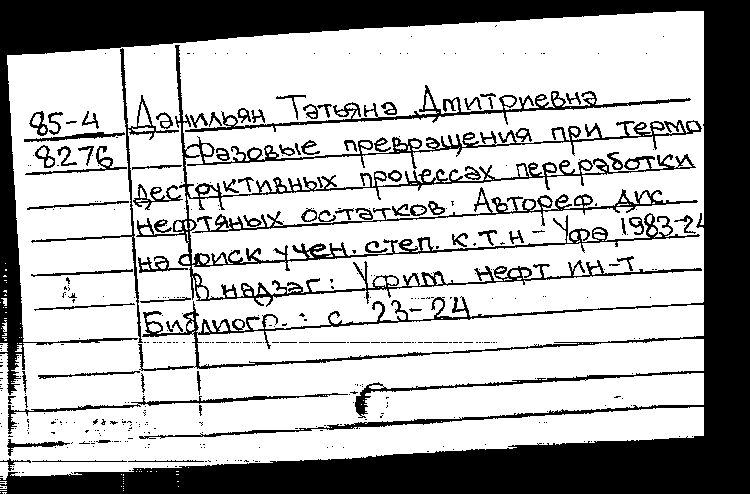 85-4 Данильян, Татьяна Дмитриевна
8276 Фазовые превращения при термо
деструктивных процессах переработки
нефтяных остатков: Автореф. дис.
на соиск учен. степ. к.т.н.- Уфа, 1983.-24
В надзаг: Уфим. нефт ин-т.
Библиогр.: с. 23-24.